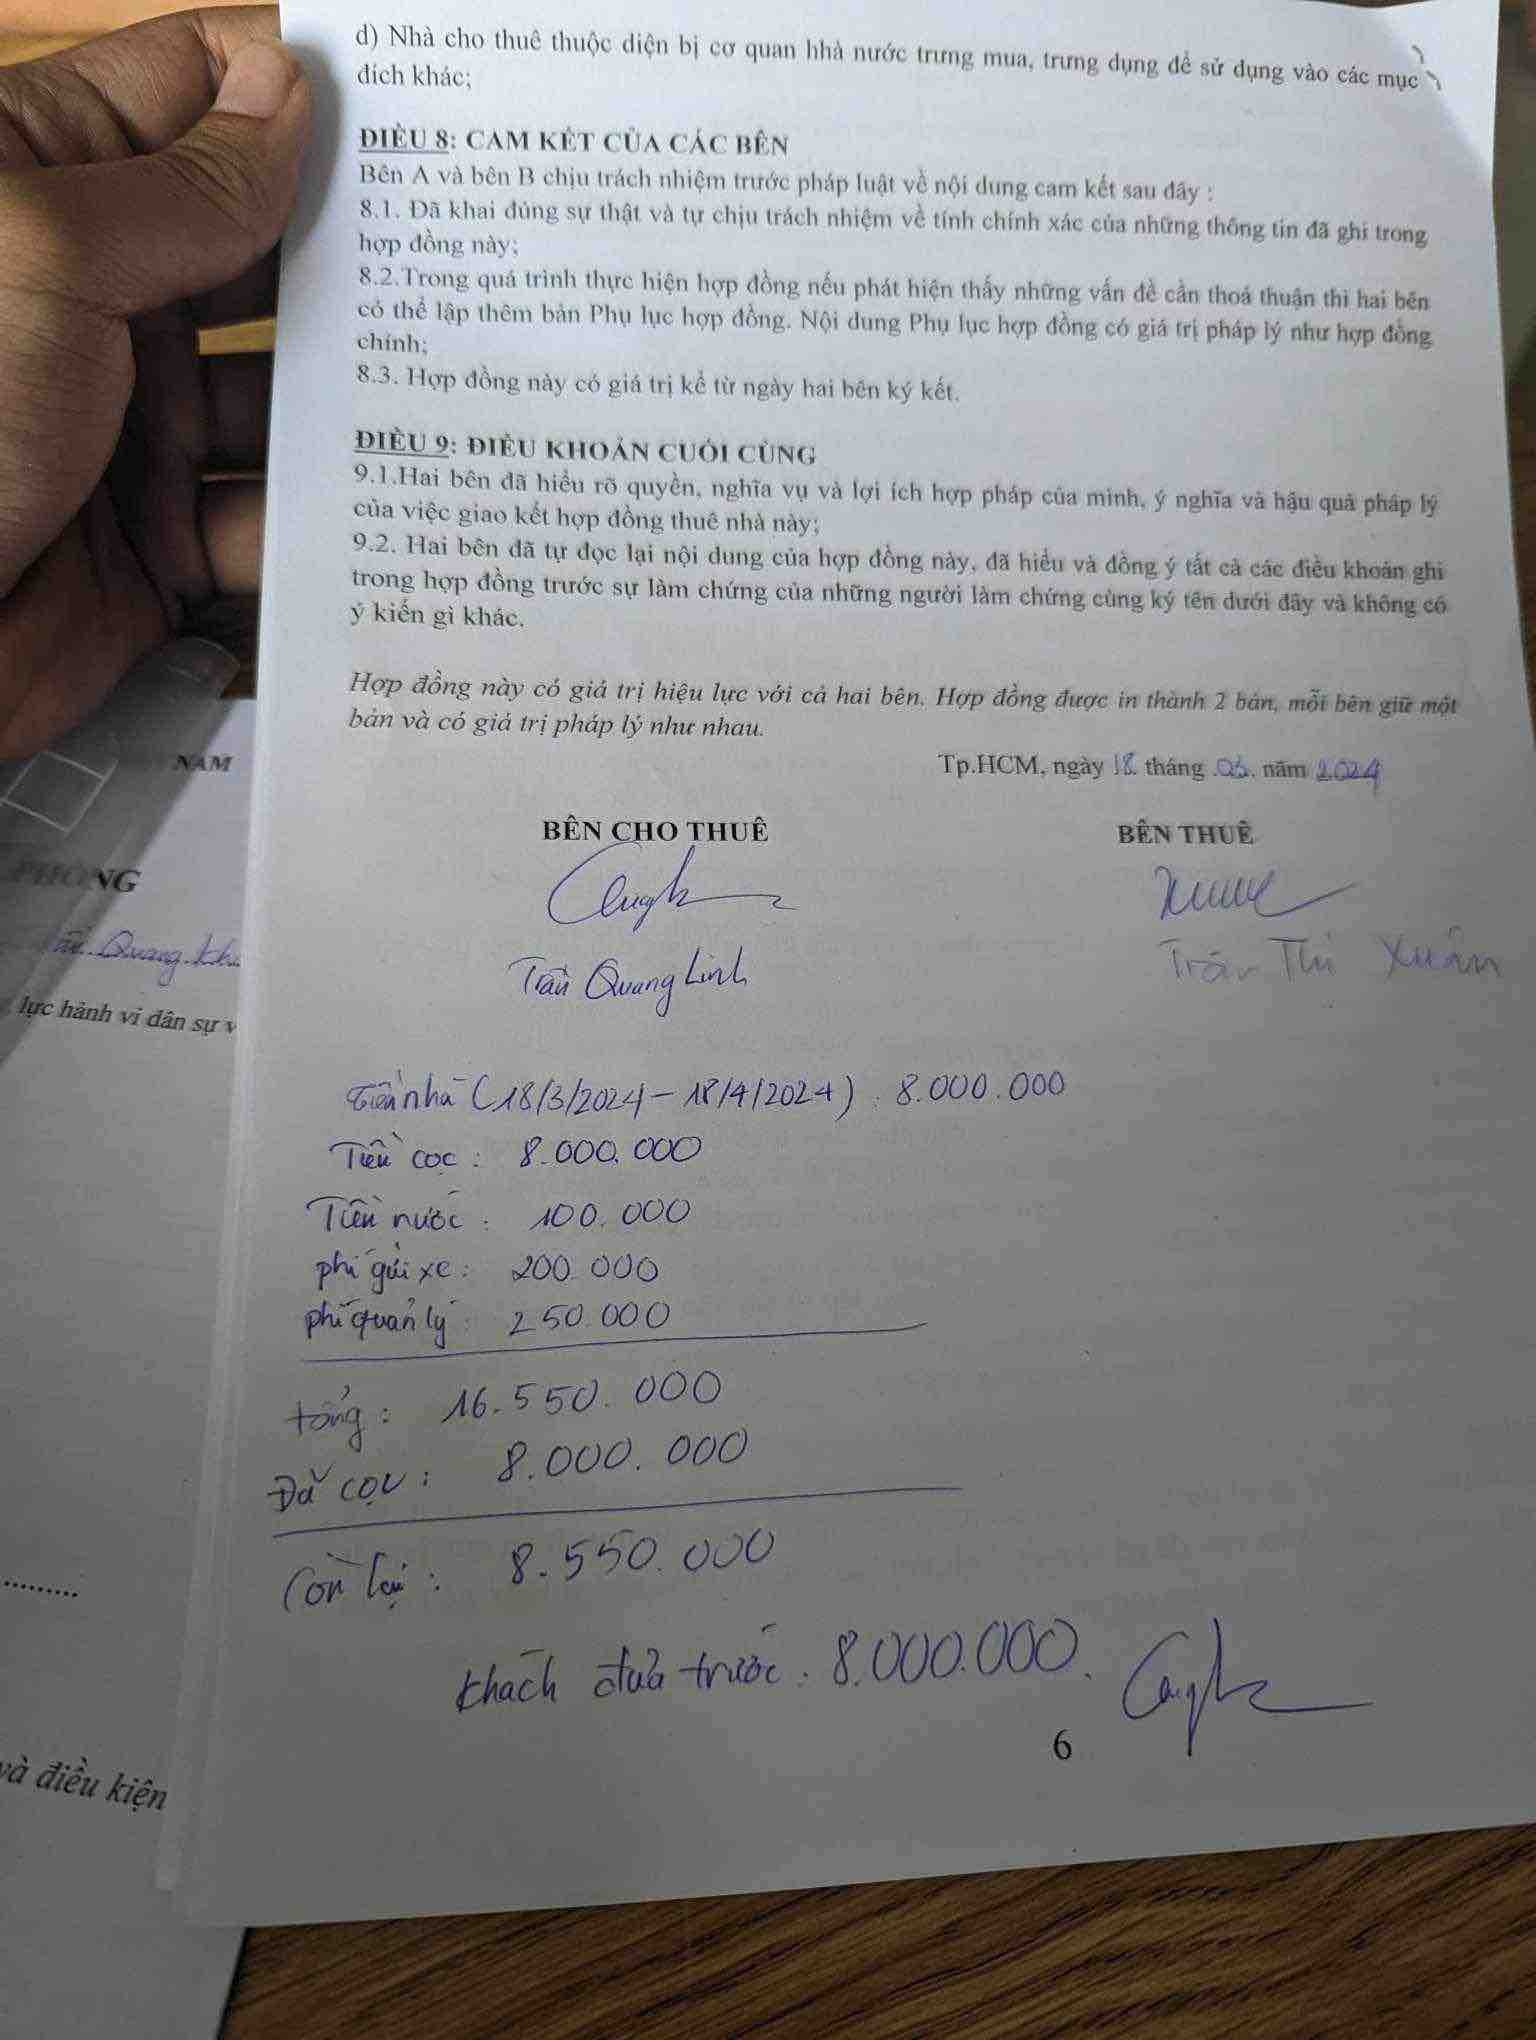 d) Nhà cho thuê thuộc diện bị cơ quan hhà nước trưng mua, trưng dụng để sử dụng vào các mục
đích khác;
ĐIỀU 8: CAM KẾT CỦA CÁC BÊN
Bên A và bên B chịu trách nhiệm trước pháp luật về nội dung cam kết sau đây :
8.1. Đã khai đúng sự thật và tự chịu trách nhiệm về tính chính xác của những thông tin đã ghi trong
hợp đồng này;
8.2.Trong quá trình thực hiện hợp đồng nếu phát hiện thấy những vấn đề cần thoả thuận thì hai bên
có thể lập thêm bản Phụ lục hợp đồng. Nội dung Phụ lục hợp đồng có giá trị pháp lý như hợp đồng
chính;
8.3. Hợp đồng này có giá trị kể từ ngày hai bên ký kết.
ĐIỀU 9: ĐIỀU KHOẢN CUỐI CÙNG
9.1.Hai bên đã hiểu rõ quyền, nghĩa vụ và lợi ích hợp pháp của mình, ý nghĩa và hậu quả pháp lý
của việc giao kết hợp đồng thuê nhà này;
9.2. Hai bên đã tự đọc lại nội dung của hợp đồng này, đã hiểu và đồng ý tất cả các điều khoản ghi
trong hợp đồng trước sự làm chứng của những người làm chứng cùng ký tên dưới đây và không có
ý kiến gì khác.
Hợp đồng này có giá trị hiệu lực với cả hai bên. Hợp đồng được in thành 2 bản, mỗi bên giữ một
bản và có giá trị pháp lý như nhau.
Tp.HCM, ngày 18 tháng 03 năm 2024
BÊN CHO THUÊ BÊN THUÊ
Trần Quang Linh Trần Thị Xuân
Tiền nhà (18/3/2024 - 18/4/2024) : 8.000.000
Tiền cọc : 8.000.000
Tiền nước : 100.000
phí gửi xe : 200.000
phí quản lý : 250.000
tổng : 16.550.000
Đã cọc : 8.000.000
Còn lại : 8.550.000
khách đưa trước : 8.000.000.
6
NAM
PHÒNG
Quang
lực hành vi dân sự v
và điều kiện